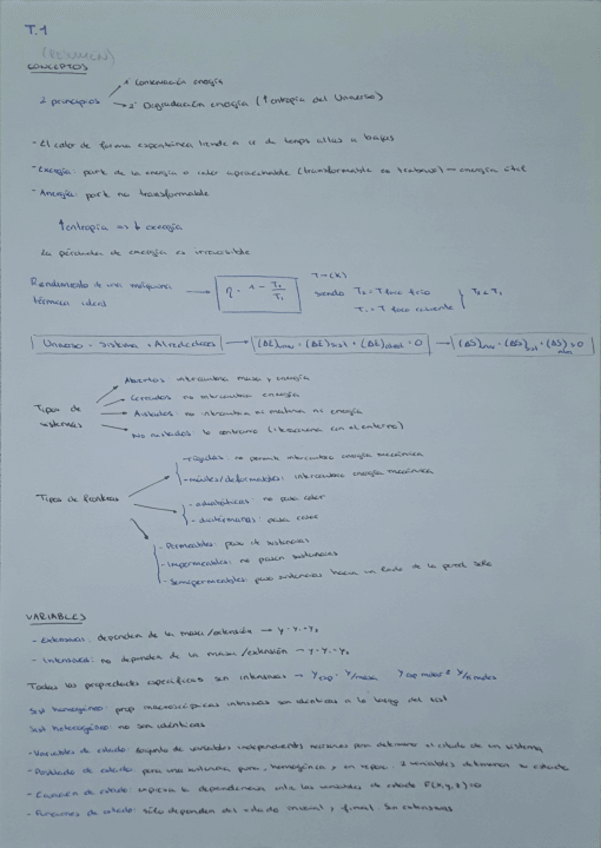 T.1
(RESUMEN)
CONCEPTOS
2 principios
1º Conservación energía
2º Degradación energía (↑entropía del Universo)
- El calor de forma espontánea tiende a ir de temps altas a bajas
- Exergía: parte de la energía o calor aprovechable (transformable en trabajo) → energía útil
- Anergía: parte no transformable
↑entropía => ↓ exergía
La pérdida de exergía es irreversible
Rendimiento de una máquina térmica ideal → η = 1 - T₂/T₁
T → (K)
siendo T₂ = T foco frío
T₁ = T foco caliente
T₂ < T₁
Universo = Sistema + Alrededores → (ΔE)univ = (ΔE)sist + (ΔE)alred = 0 → (ΔS)univ = (ΔS)sist + (ΔS)alred > 0
Tipos de sistemas
Abiertos: intercambia masa y energía
Cerrados: no intercambia energía
Aislados: no intercambia ni materia ni energía
No aislados: lo contrario (interacciona con el externo)
Tipos de fronteras
- rígidas: no permite intercambio energía mecánica
- móviles/deformables: intercambio energía mecánica
- adiabáticas: no pasa calor
- diatérmanas: pasa calor
- Permeables: paso de sustancias
- Impermeables: no pasan sustancias
- Semipermeables: paso sustancias hacia un lado de la pared solo
VARIABLES
- Extensivas: dependen de la masa/extensión → y = y₁ + y₂
- Intensivas: no dependen de la masa/extensión → y = y₁ = y₂
Todas las propiedades específicas son intensivas → y esp = y/masa y esp molar = y/n moles
Sist homogéneo: prop macroscópicas intensivas son idénticas a lo largo del sist
Sist heterogéneo: no son idénticas
- Variables de estado: conjunto de variables independientes necesarias para determinar el estado de un sistema
- Postulado de estado: para una sustancia pura, homogénea, en reposo: 2 variables determinan su estado
- Ecuación de estado: expresa la dependencia entre las variables de estado F(x,y,z)=0
- Funciones de estado: sólo dependen del estado inicial y final. Son extensivas